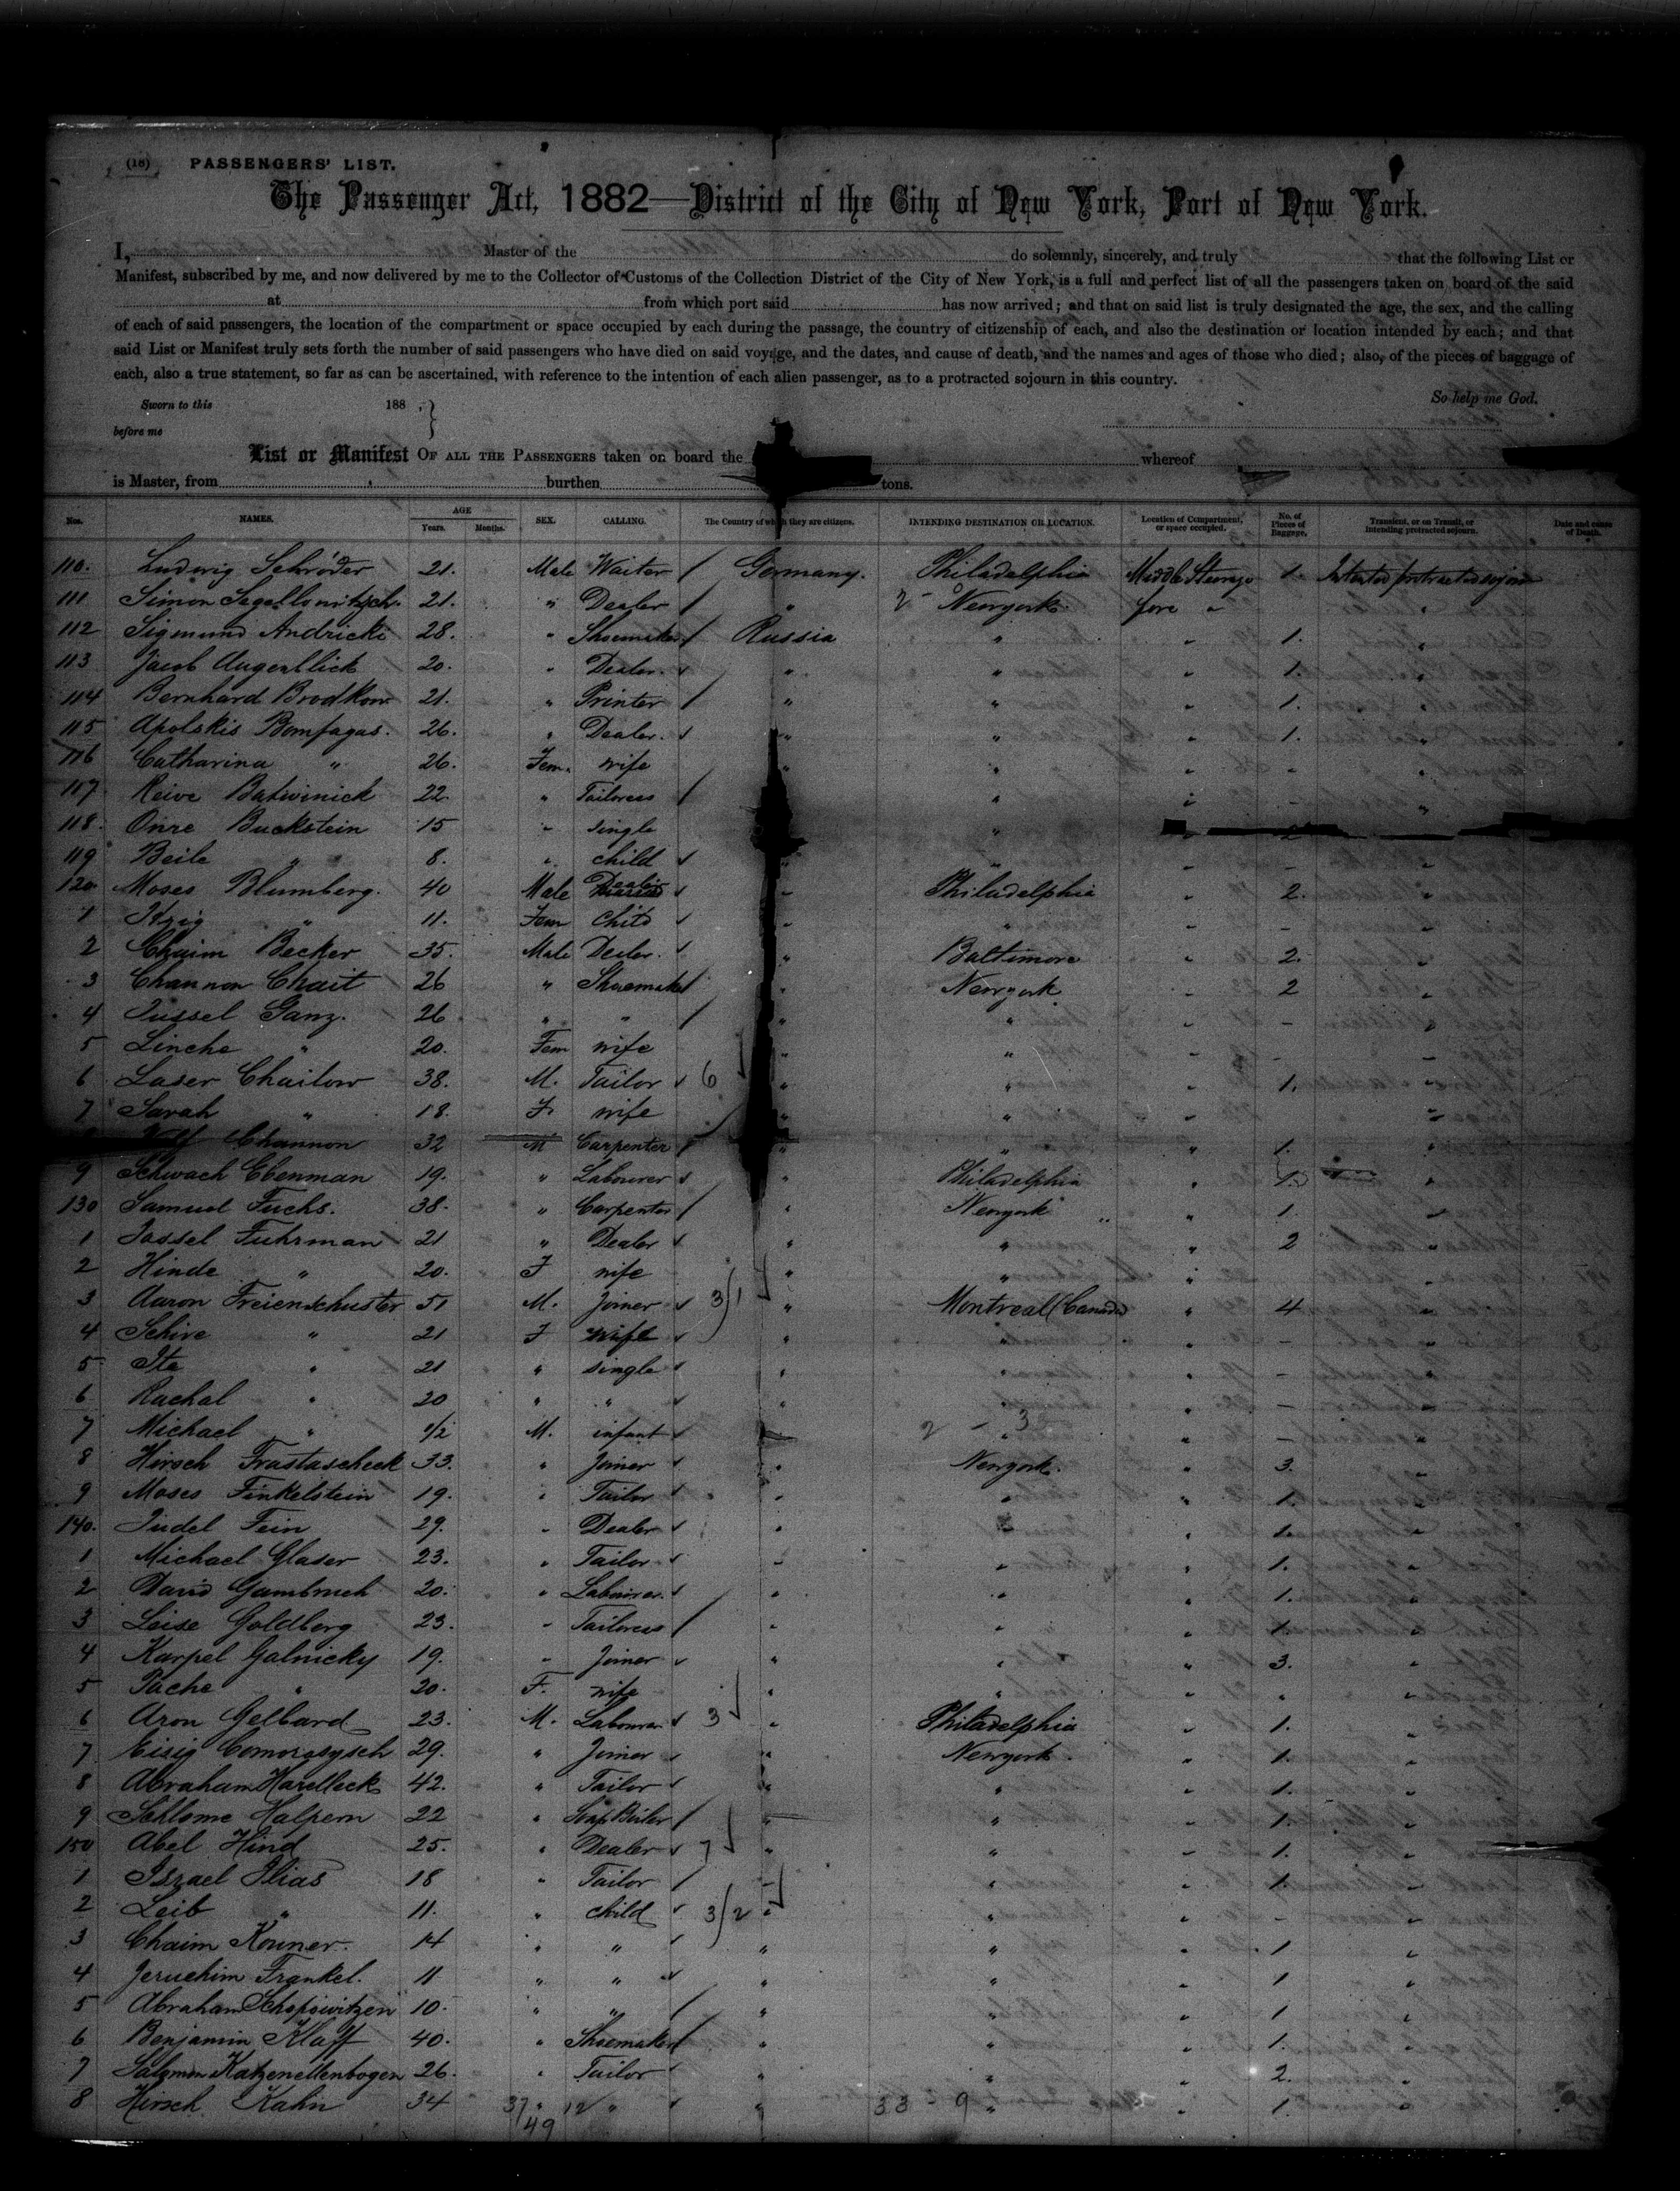 (18) PASSENGERS' LIST.
The Passenger Act, 1882—District of the City of New York, Port of New York.
I, Master of the do solemnly, sincerely, and truly that the following List or
Manifest, subscribed by me, and now delivered by me to the Collector of Customs of the Collection District of the City of New York, is a full and perfect list of all the passengers taken on board of the said
at from which port said has now arrived; and that on said list is truly designated the age, the sex, and the calling
of each of said passengers, the location of the compartment or space occupied by each during the passage, the country of citizenship of each, and also the destination or location intended by each; and that
said List or Manifest truly sets forth the number of said passengers who have died on said voyage, and the dates, and cause of death, and the names and ages of those who died; also, of the pieces of baggage of
each, also a true statement, so far as can be ascertained, with reference to the intention of each alien passenger, as to a protracted sojourn in this country.
Sworn to this 188 , } So help me God.
before me
List or Manifest OF ALL THE PASSENGERS taken on board the whereof
is Master, from burthen tons.
Nos. NAMES. AGE Years. Months. SEX. CALLING. The Country of which they are citizens. INTENDING DESTINATION OR LOCATION. Location of Compartment, or space occupied. No. of Pieces of Baggage. Transient, or on Transit, or intending protracted sojourn. Date and cause of Death.
110. Ludwig Schröder 21. Male Waiter / Germany. Philadelphia Middle Steerage 1. Intented protracted sojourn
111 Simon Segallowitzsch. 21. " Dealer / " 2 - Newyork. fore " "
112 Sigmund Andricki 28. " Shoemaker / Russia " " 1. "
113 Jacob Augenblick 20. " Dealer. ✓ " " " 1. "
114 Bernhard Brodkow 21. " Printer / " " " 1. "
115 Apolskis Bomfagas. 26. " Dealer. ✓ " " " 1. "
116 Catharina " 26. Fem. wife " " " - "
117 Reive Batwinick 22. " Tailoress / " " - "
118. Onre Buckstein 15 " single "
119 Beile " 8. " child ✓ " " " - "
120 Moses Blumberg. 40 Male Dealer ✓ " Philadelphia " 2. "
1 Itzig " 11. Fem child ✓ " " " - "
2 Chaim Becker 35. Male Dealer. ✓ " Baltimore " 2. "
3 Channon Chait 26 " Shoemaker / " Newyork " 2 "
4 Jussel Ganz. 26 " " / " " " - "
5 Linche " 20. Fem wife " " " - "
6 Laser Chailow 38. M. Tailor ✓ 6 " " " 1. "
7 Sarah " 18. F. wife " " " "
Channon 32 M Carpenter / " " " 1. "
9 Schwach Ebenman 19. " Labourer ✓ " Philadelphia " 1. "
130 Samuel Fuchs. 38. " Carpenter / " Newyork " " 1. "
1 Jossel Fuhrman 21 " Dealer ✓ " " " 2 "
2 Hinde " 20. F wife " " "
3 Aaron Freienschuster 51 M. Joiner ✓ 3/1 " Montreal (Canada " 4 "
4 Schire " 21 F wife ✓ " " " - "
5 Ite " 21 " single ✓ " " " - "
6 Rachal " 20 " " ✓ " " " - "
7 Michael " M. infant ✓ " 2 - 3 " - "
8 Hirsch Frastascheck 33. " Joiner ✓ " Newyork. " 3. "
9 Moses Finkelstein 19. " Tailor ✓ " " " 1. "
140. Judel Fein 29. " Dealer ✓ " " " 1. "
1 Michael Glaser 23. " Tailor ✓ " " " 1. "
2 David Gambruch 20. " Labourer. ✓ " " " 1. "
3 Leise Goldberg 23. " Tailoress / " " " 1. "
4 Karpel Galnicky 19. " Joiner ✓ " " " 3. "
5 Pache " 20. F. wife " " " " "
6 Aron Gelbard 23. M. Labourer ✓ 3 " Philadelphia " 1. "
7 Eisig Comorgsysch 29. " Joiner ✓ " Newyork. " 1. "
8 Abraham Harelleck 42. " Tailor ✓ " " " 1. "
9 Schlome Halpern 22 " Soap Boiler / " " " 1. "
150 Abel Hind 25. " Dealer ✓ 7 " " " 1. "
1 Iszael Ilias 18 " Tailor / " " " 1. "
2 Leib " 11. " child ✓ 3/2 " " " - "
3 Chaim Konner. 14 " " ✓ " " " 1 "
4 Jeruchim Frankel. 11 " " ✓ " " " 1 "
5 Abraham Schopowitzen 10. " " / " " " 1 "
6 Benjamin Klaff 40. " Shoemaker / " " " 1. "
7 Salomon Katzenellenbogen 26. " Tailor ✓ " " " 2. "
8 Hirsch Kahn 34 37 " 12 " ✓ " 33 - 9 " " 1. "
49